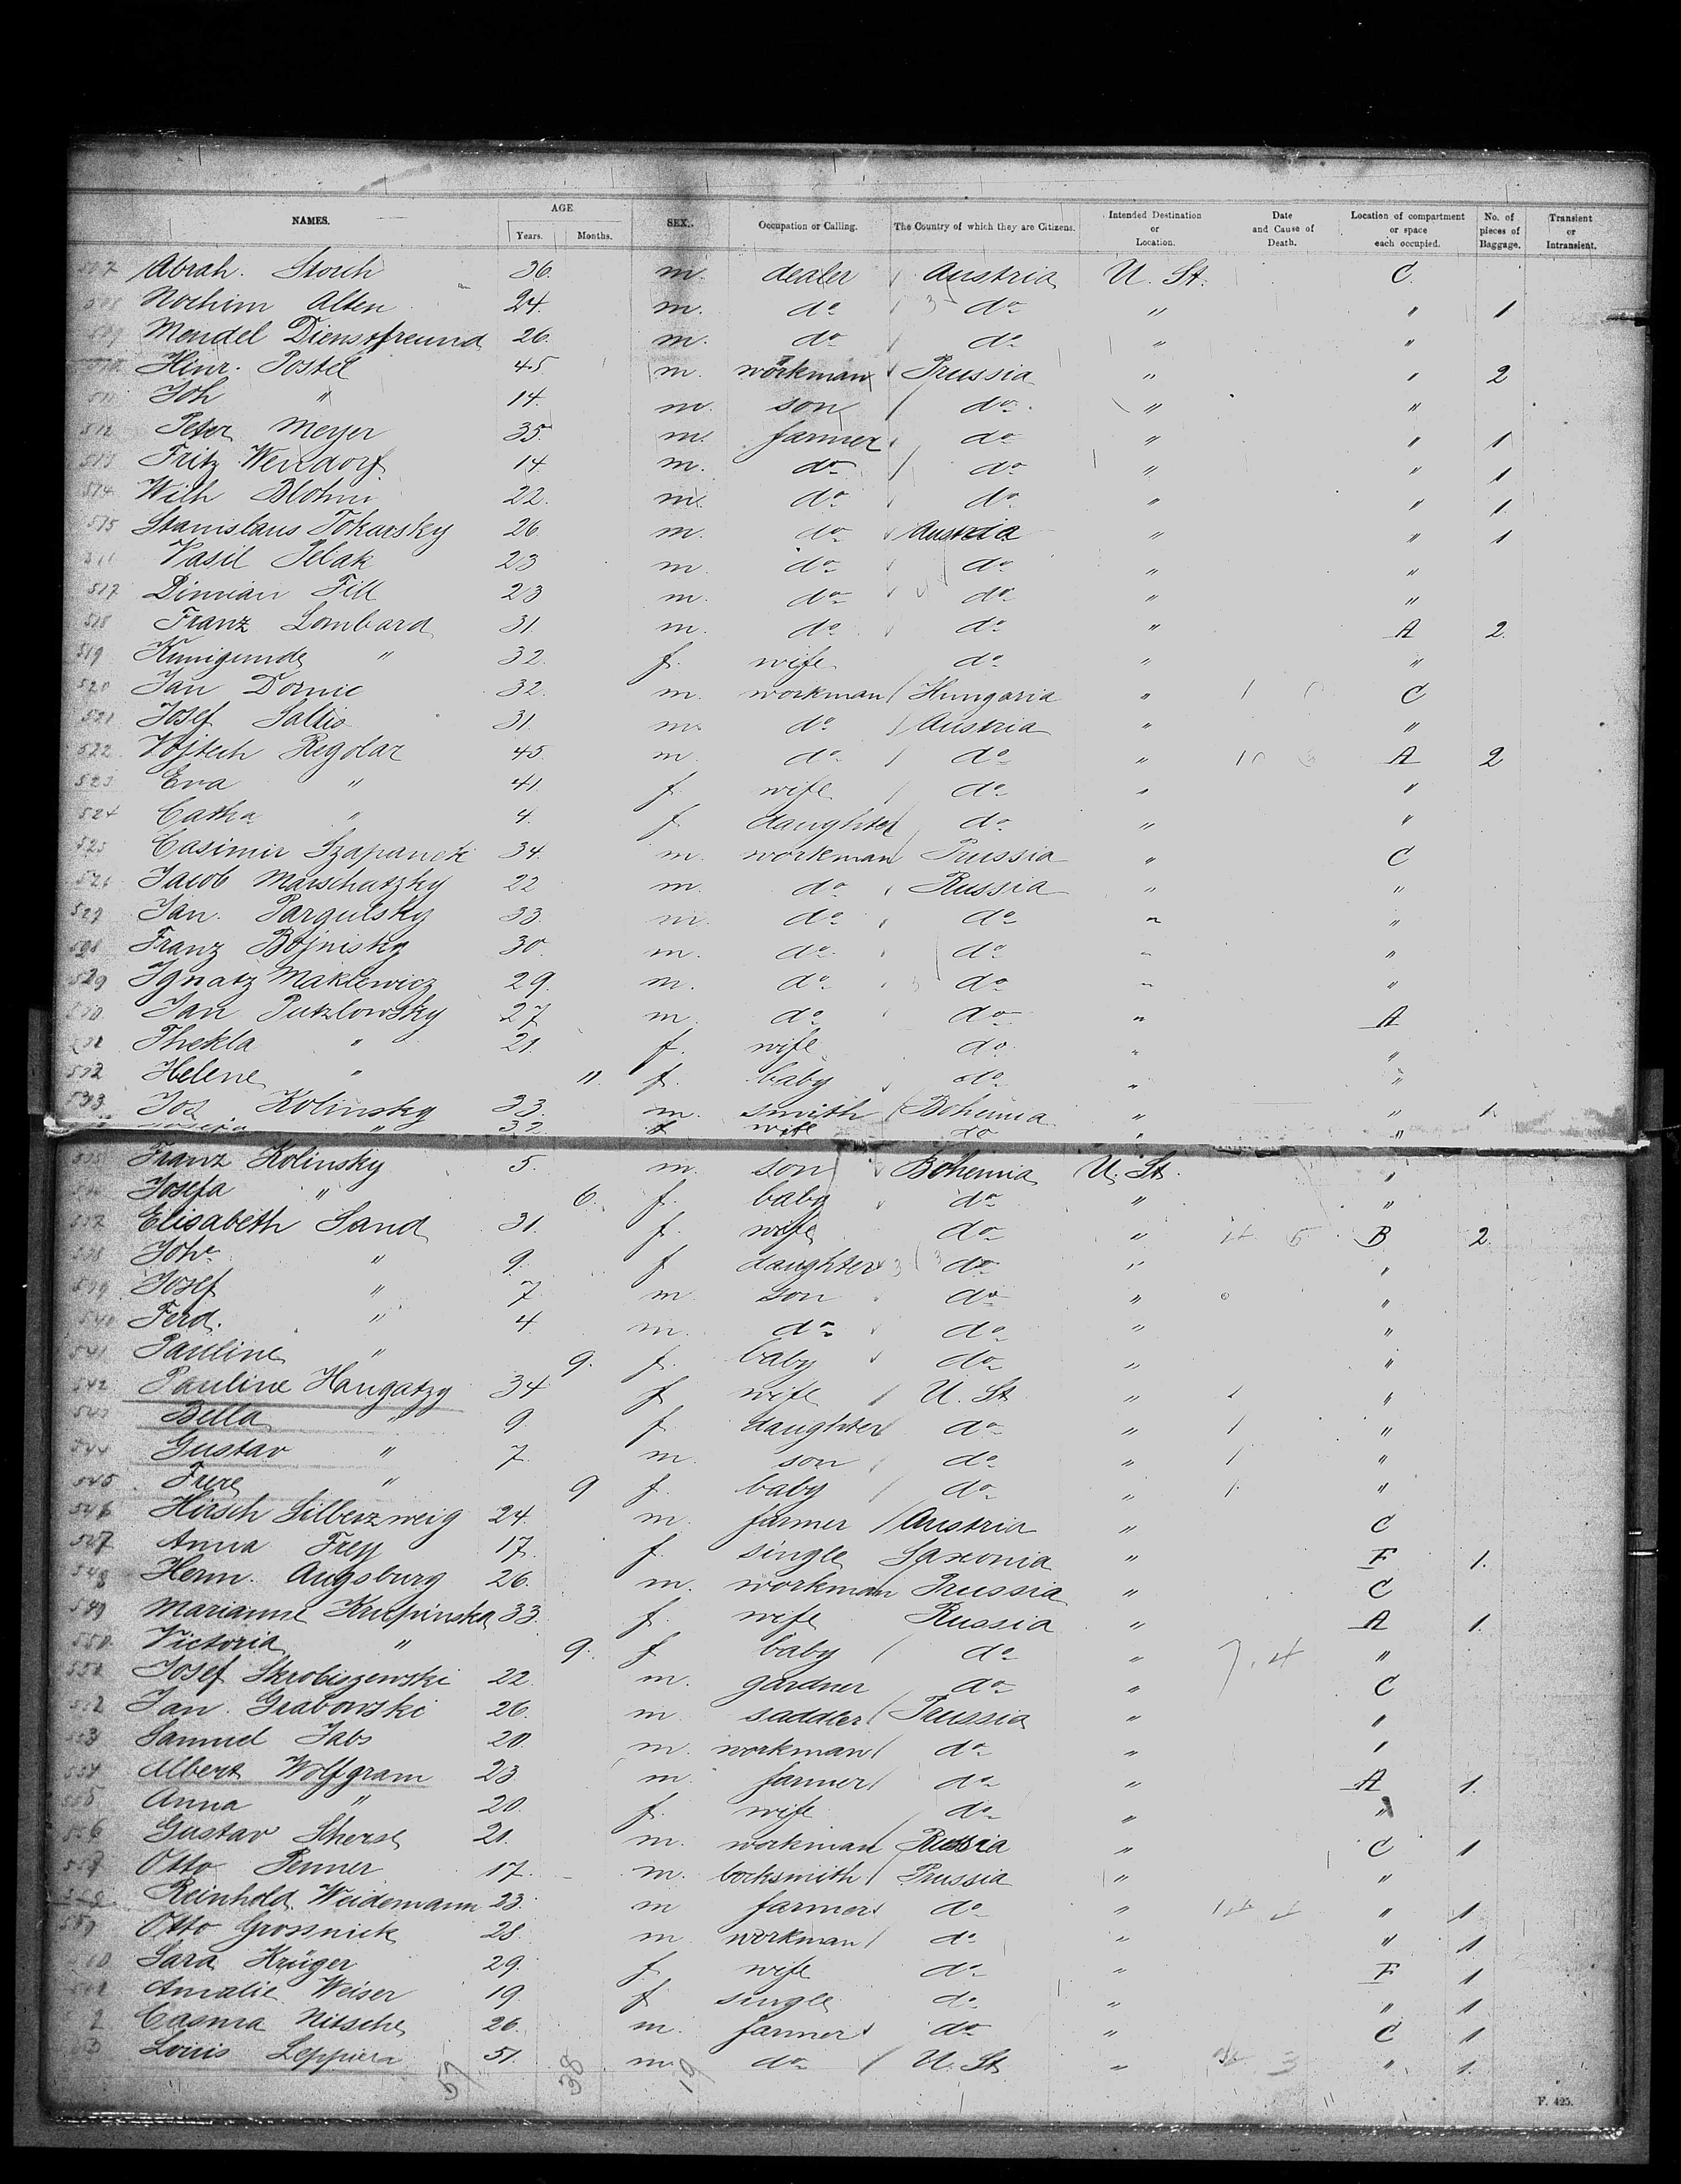 NAMES. AGE Years. Months. SEX. Occupation or Calling. The Country of which they are Citizens. Intended Destination or Location. Date and Cause of Death. Location of compartment or space each occupied. No. of pieces of Baggage. Transient or Intransient.
507 Abrah. Storch 36. m. dealer Austria U. St. C.
508 Nochim Alten 24. m. do do " " 1
509 Mendel Dienstfreund 26. m. do do " "
510 Hinr. Postel 45 m. workman Prussia " " 2
511 Joh " 14. m. son do " "
512 Peter Meyer 35. m. farmer do " " 1
513 Fritz Wendorf 14 m. do do " " 1
514 Wilh Blohm 22. m. do do " " 1
515 Stanislaus Tokarsky 26 m. do Austria " " 1
516 Vasil Pelak 23 m. do do " "
517 Dimian Fill 23 m. do do " "
518 Franz Lombard 31. m. do do " A 2.
519 Kunigunde " 32. f. wife do " "
520 Jan Dornic 32. m. workman Hungaria " C
521 Josef 31. m. do Austria " "
522 Vojtech Regolar 45. m. do do " A 2
523 Eva " 41 f. wife do " "
524 Catha " 4. f. daughter do " "
525 Casimir Szapanek 34. m. workman Prussia " C
526 Jacob Marschatzky 22 m. do Russia " "
527 Jan. Pargulsky 33. m. do do " "
528 Franz Bojnisky 30. m. do do " "
529 Ignatz Maklewicz 29. m. do do " "
530 Jan Putzlowsky 27 m. do do " A
531 Thekla " 21. f. wife do " "
532 Helene " 11. f. baby do " "
533 Jos Kolinsky 33. m. smith Bohemia " " 1.
" 32 f wife do " "
535 Franz Kolinsky 5. m. son Bohemia U. St. "
536 Josefa " 6. f. baby do " "
537 Elisabeth Sand 31. f. wife do " B 2.
538 Joha " 9. f daughter do " "
539 Josef " 7 m son do " "
540 Ferd. " 4 m. do do " "
541 Pauline " 9. f. baby do " "
542 Pauline Hangatzy 34 f wife U. St " "
543 Bella " 9. f. daughter do " "
544 Gustav " 7. m. son do " "
545 " 9 f. baby do " "
546 Hirsch Silberzweig 24. m. farmer Austria " C
547 Anna Frey 17. f. single Saxonia " F 1.
548 Herm. Augsburg 26. m. workman Prussia " C
549 Marianne Krupinska 33. f. wife Russia " A 1.
550 Victoria " 9. f baby do " "
551 Josef Skrobiszewski 22. m. gardner do " C
552 Jan. Grabowski 26. m saddler Prussia " "
553 Samuel Jabs 20. m. workman do " "
554 Albert Wolfgram 23 m. farmer do " A 1.
555 Anna " 20. f. wife do " "
556 Gustav Scherse 21. m. workman Russia " C 1
557 Otto Penner 17. m. locksmith Prussia " "
558 Reinhold Weidemann 23. m farmer do " " 1
559 Otto Grossnick 28. m. workman do " " 1
560 Sara Krüger 29. f. wife do " F 1
561 Amalie Weiser 19. f single do " " 1
2 Casma Nitsche 26. m. farmer do " C 1
563 Louis Leppien 51. m. do U. St " " 1.
57 38 19
F. 425.